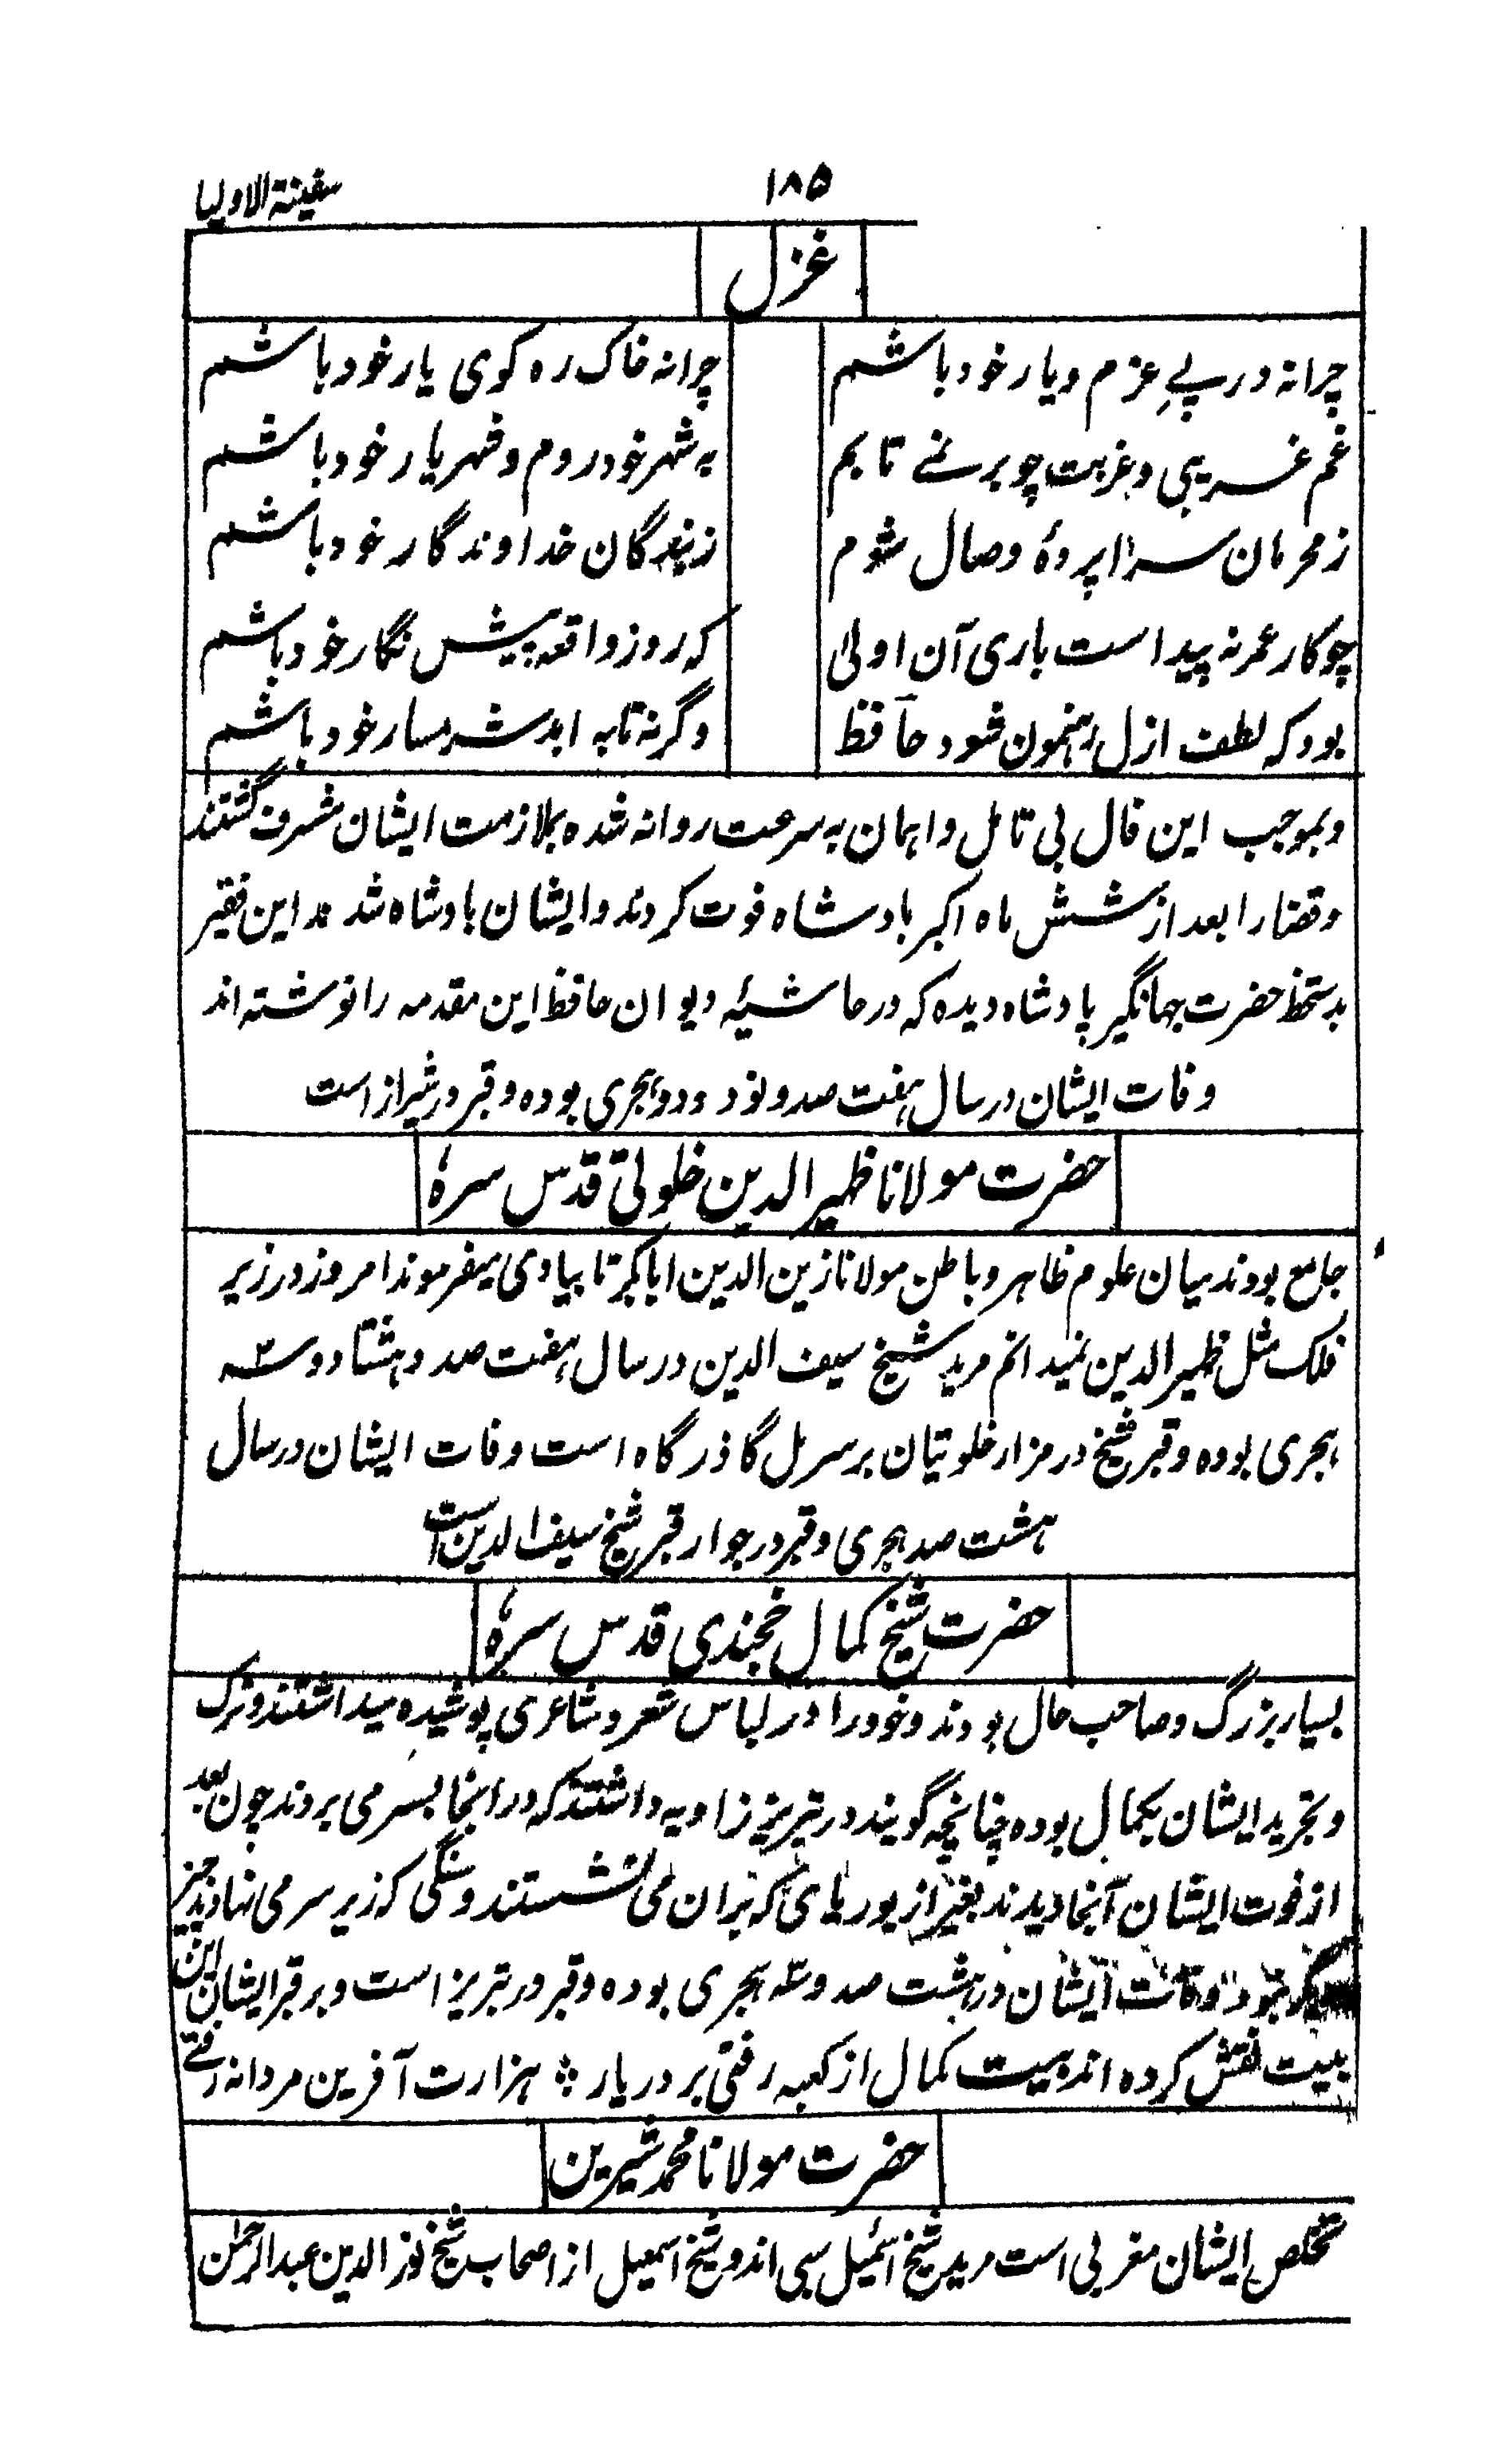 ۱۸۵ سفینة الاولیا
غزل
چرا نه در پےِ عزم دیار خود باشم چرا نه خاک ره کوی یار خود باشم
غم غریبی و غربت چو بر نمے تابم به شهر خود روم و شهریار خود باشم
ز محرمان سراپردهٔ وصال شوم ز بندگان خداوندگار خود باشم
چو کار عمر نه پیداست باری آن اولیٰ که روز واقعه پیش نگار خود باشم
بود که لطف ازل رهنمون شود حافظ وگرنه تا به ابد شرمسار خود باشم
و بموجب این فال بی تامل و اهمان به سرعت روانه شده بملازمت ایشان مشرف گشتند
و قضا را بعد از شش ماه اکبر بادشاه فوت کردند و ایشان بادشاه شدند این فقیر
بدستخط حضرت جهانگیر پادشاه دیده که در حاشیهٔ دیوان حافظ این مقدمه را نوشته اند
وفات ایشان در سال هفت صد و نود و دو هجری بوده و قبر در شیراز است
حضرت مولانا ظهیر الدین خلوتی قدس سرهٗ
جامع بودند میان علوم ظاهر و باطن مولانا زین الدین ابابکر تایبادی میفرمودند امروز در زیر
فلک مثل ظهیر الدین نمیدانم مرید شیخ سیف الدین در سال هفت صد و هشتاد و سه
هجری بوده و قبر شیخ در مزار خلوتیان بر سر پل گاذر گاه است وفات ایشان در سال
هشت صد هجری و قبر در جوار قبر شیخ سیف الدین است
حضرت شیخ کمال خجندی قدس سرهٗ
بسیار بزرگ و صاحب حال بودند و خود را در لباس شعر و شاعری پوشیده میداشتند و ترک
و تجرید ایشان بکمال بوده چنانچه گویند در تبریز زاویه داشتند که در انجا بسر می بردند چون بعد
از فوت ایشان آنجا دیدند بغیر از بوریای که بران می نشستند و سنگی که زیر سر می نهادند چیز
دیگر نبود وفات ایشان در هشت صد و سه هجری بوده و قبر در تبریز است و بر قبر ایشان این
بیت نقش کرده اند بیت کمال از کعبه رفتی بر در یار ؞ هزارت آفرین مردانه رفتے
حضرت مولانا محمد شیرین
تخلص ایشان مغربی است مرید شیخ اسمٰعیل سیسی اند و شیخ اسمعیل از اصحاب شیخ نور الدین عبدالرحمٰن